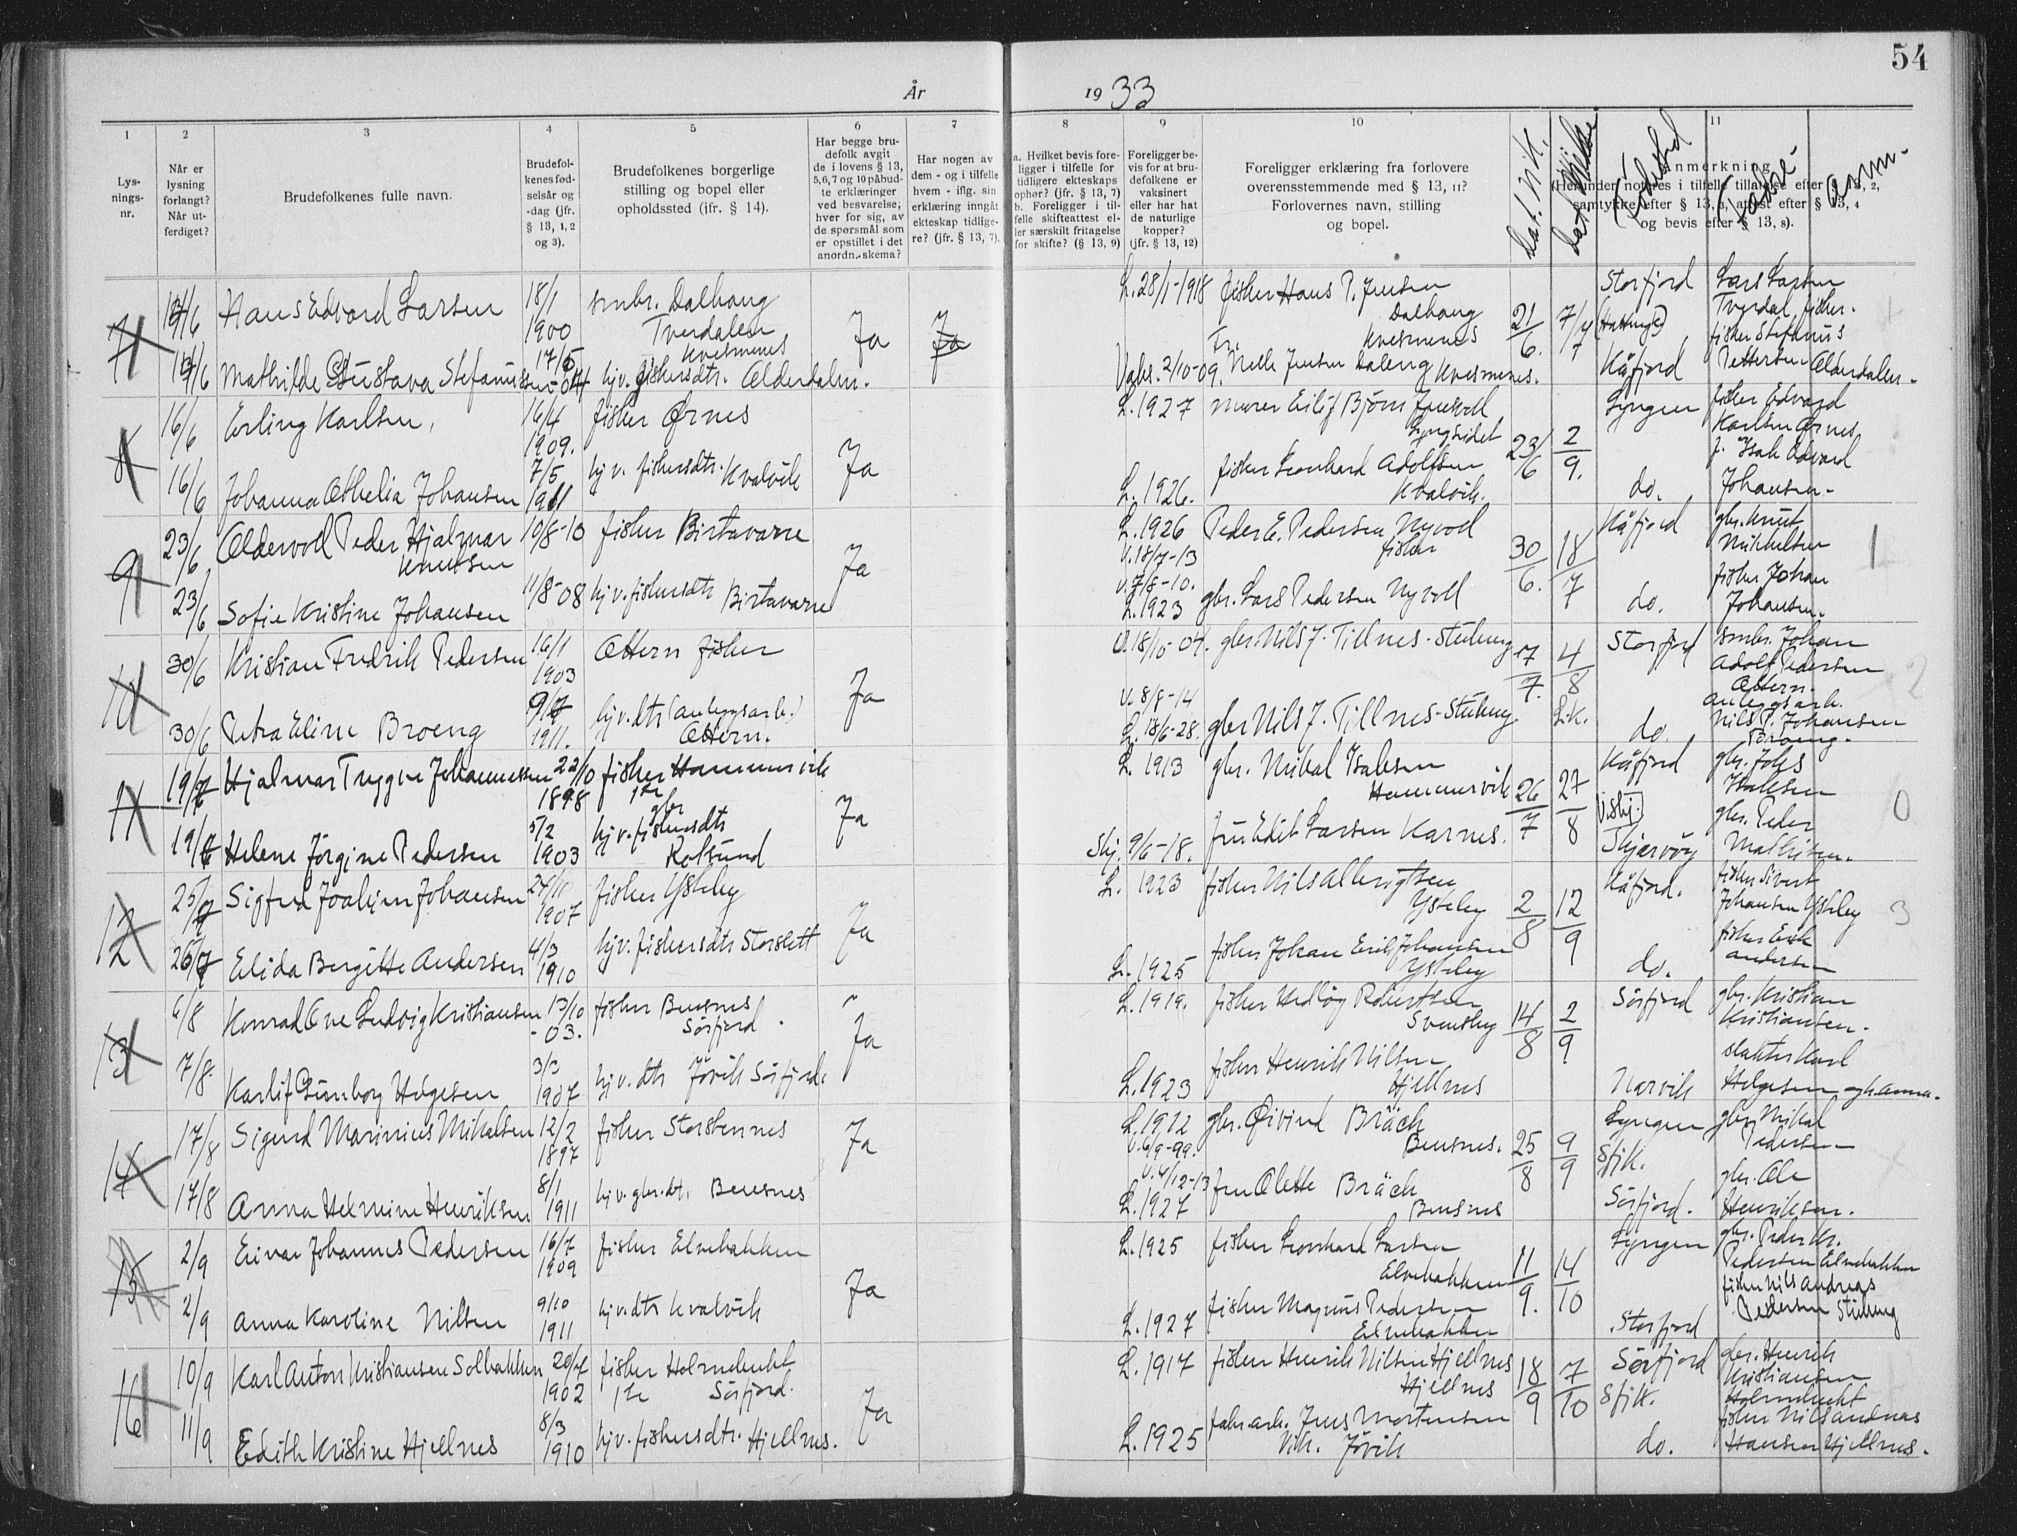 54
År 1933
1 2 3 4 5 6 7 8 9 10 11
Lysningsnr.
Når er lysning forlangt? Når utferdiget?
Brudefolkenes fulle navn.
Brudefolkenes fødselsår og -dag (jfr. § 13, 1, 2 og 3).
Brudefolkenes borgerlige stilling og bopel eller opholdssted (jfr. § 14).
Har begge brudefolk avgit de i lovens § 13, 5, 6, 7 og 10 påbudte erklæringer ved besvarelse, hver for sig, av de spørsmål som er opstillet i det anordn. skema?
Har nogen av dem - og i tilfelle hvem - iflg. sin erklæring inngåt ekteskap tidligere? (jfr. § 13, 7).
a. Hvilket bevis foreligger i tilfelle for tidligere ekteskaps ophør? (jfr. § 13, 7)
b. Foreligger i tilfelle skifteattest eller særskilt fritagelse for skifte? (§ 13, 9)
Foreligger bevis for at brudefolkene er vaksinert eller har hat de naturlige kopper? (jfr. § 13, 12)
Foreligger erklæring fra forlovere overensstemmende med § 13, 11? Forlovernes navn, stilling og bopel.
Anmerkning
(Herunder noteres i tilfelle tillatelse efter § 1, 2, samtykke efter § 13, 3, attest efter § 13, 4 og bevis efter § 13, 8).
Fødested
Anm.
7 14/6 Hans Edvard Larsen 18/1 1900 smbr. Dalhaug Tverdalen Kvesmenes Ja
L. 28/1-1918 fisker Hans P. Jensen Dalhaug Kvesmenes 21/6. 7/7 Storfjord Lars Larsen Tverdal, fisker.
14/6 Mathilde Gustava Stefanussen 17/5-04 hjv. fiskersdtr. Olderdalen.
2/10-09. Kvesmenes. Kåfjord fisker Stefanus Pettersen Olderdalen.
8 16/6 Erling Karlsen, 16/4 1909. fisker Ørnes Ja
L. 1927 murer Eilif Bjørn Jensvoll Lyngseidet 23/6 2/9. Lyngen fisker Edvard Karlsen Ørnes
16/6 Johanna Othelia Johansen 7/5 1911 hjv. fiskersdtr. Kvalvik
L. 1926. fisker Leonhard Adolfsen Kvalvik. do. f. Isak Edvard Johansen.
9 23/6 Oldervoll Peder Hjalmar Knutsen 10/8-10 fisker Birtavarre Ja
L. 1926 Peder E. Pedersen Nyvoll fisker 30/6. 18/7 Kåfjord gbr. Knut Mikkelsen 1
V. 18/7-13
23/6 Sofie Kristine Johansen 11/8-08 hjv. fiskersdtr Birtavarre
V. 7/8-10. L. 1923 gbr. Lars Pedersen Nyvoll do. fisker Johan Johansen.
10 30/6 Kristian Fredrik Pedersen 16/1 1903 Ottern fisker Ja
V. 18/10-04. gbr. Nils J. Tillnes-Steibung 17/7. 4/8 Storfjord smbr. Johan Adolf Pedersen Ottern. 2
30/6 Petra Eline Broeng 9/7 1911. hjv. dtr (anleggsarb.) Ottern.
V. 8/8-14 L. 18/6-28. gbr Nils J. Tillnes-Steibung L.k. do. anleggsarb. Nils P. Johansen Broeng.
11 19/7 Hjalmar Tryggve Johannessen 22/10 1898 fisker Hammervik Ja
L. 1913 gbr. Mikal Isaksen Hammervik 26/7 27/8 Kåfjord gbr. Johs Isaksen 0
19/7 Helene Jørgine Pedersen 5/2 1903 hjv. gbr fiskersdtr Rotsund
Skj. 9/6-18. fru Edit Larsen Karnes. Skjervøy gbr. Peder Mathisen.
12 25/7 Sigfred Joakim Johansen 24/11 1907 fisker Ysteby Ja
L. 1923 fisker Nils Albrigtsen Ysteby 2/8 12/9 Kåfjord. fisker Sivert Johansen Ysteby 3
26/7 Elida Bergitte Andersen 4/3 1910 hjv. fiskersdtr Storslett
L. 1925 fisker Johan Erik Johansen Ysteby do. fisker Erik Andersen
13 6/8 Konrad Ove Ludvig Kristiansen 13/10-03. fisker Bensnes Sørfjord Ja
L. 1919. fisker Robertsen Svensby 14/8 2/9 Sørfjord gbr. Kristian Kristiansen.
7/8. Helgesen 3/3 1907 hjv. dtr Jøvik Sørfjord.
L. 1923 fisker Henrik Nilsen Hjellnes Narvik slakter Karl Helgesen
14 17/8 Sigurd Marinius Mikalsen 12/2 1897 fisker Storstennes Ja
L. 1912 V. 6/9-99. gbr. Øivind Bräck Bensnes. 25/8 9/9 Lyngen gbr. Mikal Pedersen
Sfjk.
17/8 Anna Helmine Henriksen 8/1 1911 hjv. gbr. dt. Bensnes
V. 4/12-13 L. 1927 fru Olette Bräck Bensnes Sørfjord. gbr. Ole Henriksen.
15 2/9 Eivar Johannes Pedersen 16/7 1909 fisker Elvebakken Ja
L. 1925 fisker Leonhard Larsen Elvebakken 11/9. 14/10 Lyngen gbr. Peder Kr. Pedersen Elvebakken
2/9 Anna Karoline Nilsen 9/10 1911 hjv. dtr Kvalvik
L. 1927 fisker Magnus Pedersen Elvebakken Storfjord fisker Nils Andreas Pedersen Steibung
16 10/9 Karl Anton Kristiansen Solbakken 20/7 1902 fisker Holmebukt Sørfjord. Ja
L. 1917 fisker Henrik Nilsen Hjellnes Hjellnes 18/9 7/10 Sørfjord gbr. Henrik Kristiansen Holmebukt
Sfjk.
11/9 Edith Kristine Hjellnes 8/3 1910 hjv. fiskersdtr. Hjellnes.
L. 1925 Jens Mortensen Vik. Jøvik do. fisker Nils Andreas Hansen Hjellnes.